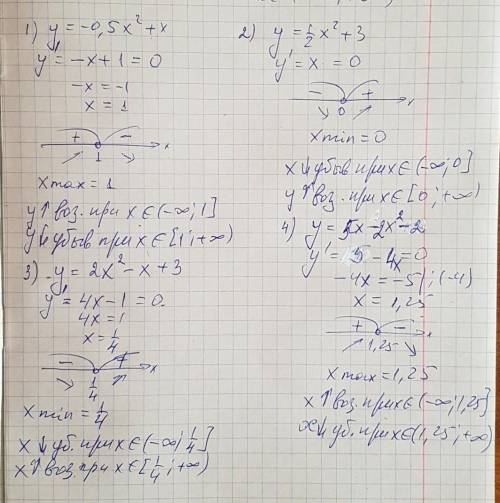 1) y = -0,5x² + x
y' = -x + 1 = 0
-x = -1
x = 1
+ -
1 x
x max = 1
y↑ воз. при x ∈ (-∞; 1]
y↓ убыв при x ∈ [1; +∞)
3) y = 2x² - x + 3
y' = 4x - 1 = 0.
4x = 1
x = 1/4
- +
1/4 x
x min = 1/4
x ↓ уб. при x ∈ (-∞; 1/4]
x ↑ воз. при x ∈ [1/4; +∞)
2) y = 1/2 x² + 3
y' = x = 0
- +
0 x
x min = 0
x ↓ убыв при x ∈ (-∞; 0]
y ↑ воз. при x ∈ [0; +∞)
4) y = 5x - 2x² - 2
y' = 5 - 4x = 0
-4x = -5 | : (-4)
x = 1,25
+ -
1,25 x
x max = 1,25
x ↑ воз. при x ∈ (-∞; 1,25]
x ↓ уб. при x ∈ (1,25; +∞)